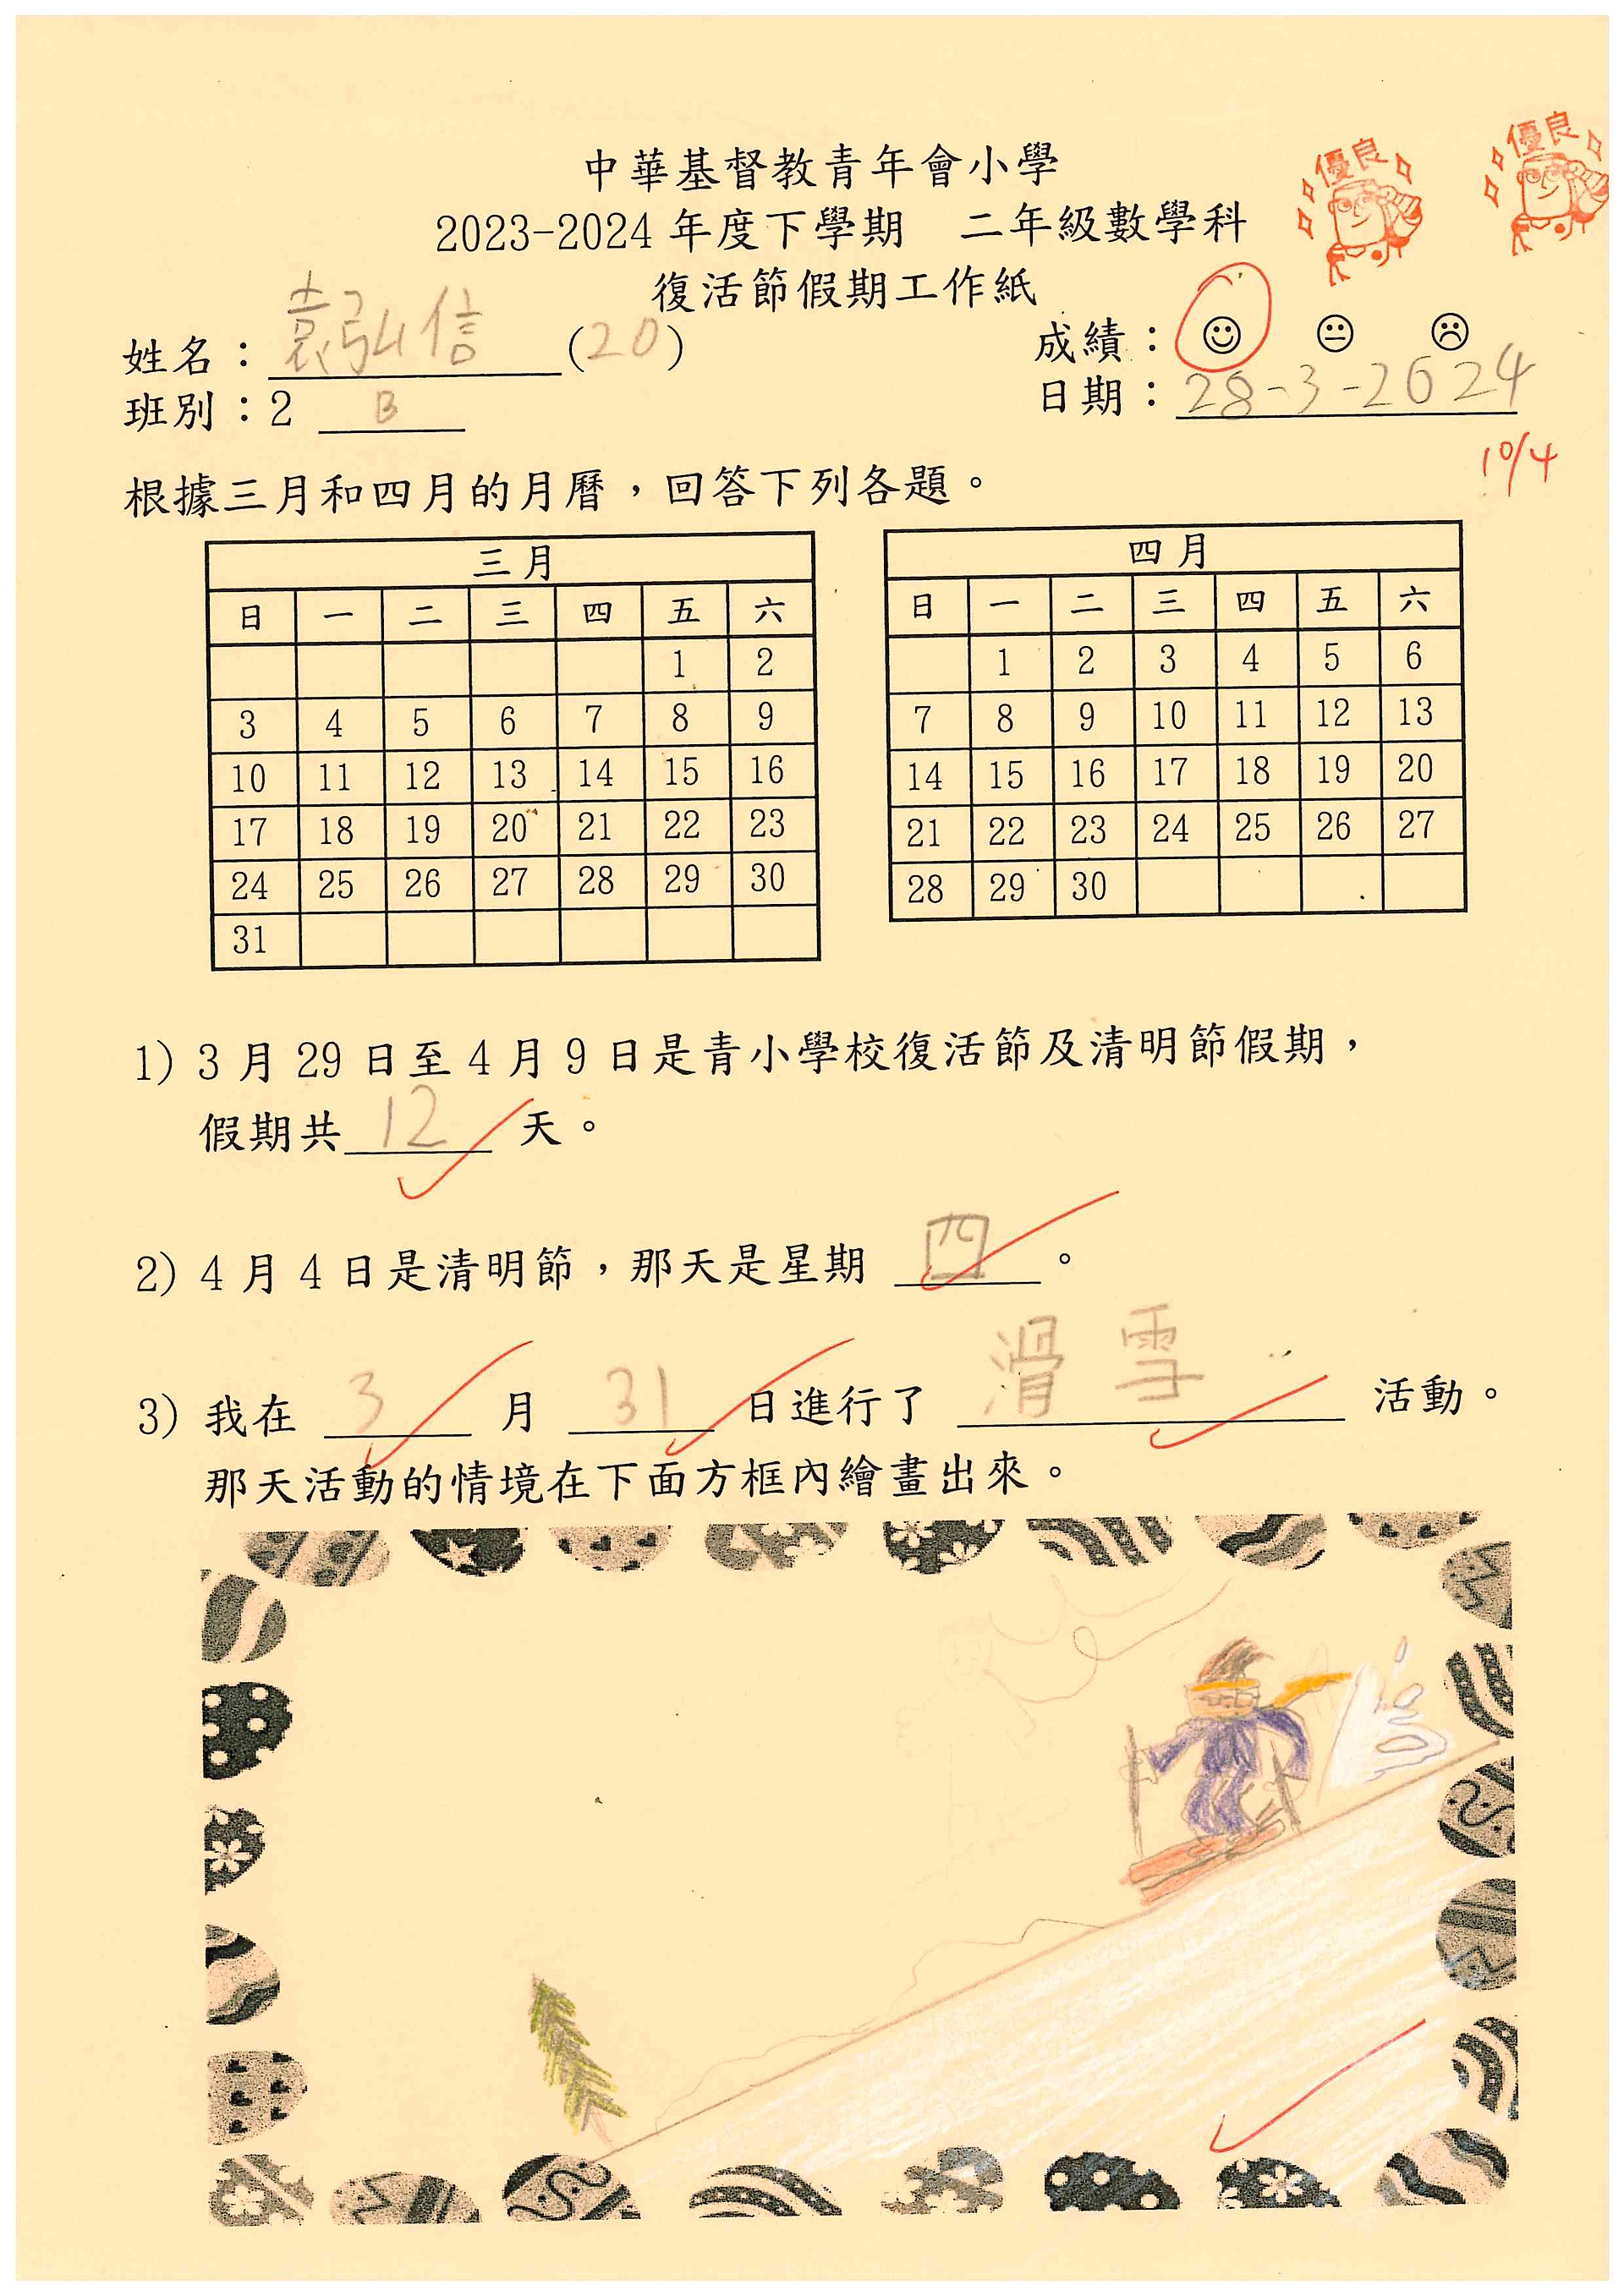 中華基督教青年會小學
2023-2024 年度下學期 二年級數學科
復活節假期工作紙
優良
優良
姓名：袁弘信 (20)
成績：
班別：2 B
日期：28-3-2024
10/4
根據三月和四月的月曆，回答下列各題。
三月
日 一 二 三 四 五 六
1 2
3 4 5 6 7 8 9
10 11 12 13 14 15 16
17 18 19 20 21 22 23
24 25 26 27 28 29 30
31
四月
日 一 二 三 四 五 六
1 2 3 4 5 6
7 8 9 10 11 12 13
14 15 16 17 18 19 20
21 22 23 24 25 26 27
28 29 30
1) 3 月 29 日至 4 月 9 日是青小學校復活節及清明節假期，
假期共 12 天。
2) 4 月 4 日是清明節，那天是星期 四 。
3) 我在 3 月 31 日進行了 滑雪 活動。
那天活動的情境在下面方框內繪畫出來。